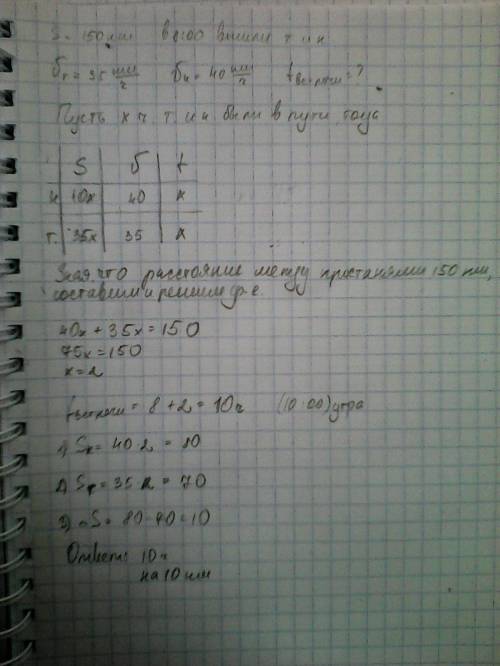 S = 150 км в 8:00 вышли т и к
υт = 35 км/ч υк = 40 км/ч tвстречи = ?
Пусть x ч т и к были в пути, тогда
S υ t
к 40x 40 x
т. 35x 35 x
Зная, что расстояние между пристанями 150 км,
составим и решим ур-е.
40x + 35x = 150
75x = 150
x = 2
tвстречи = 8 + 2 = 10ч (10:00) утра
1) Sк = 40·2 = 80
2) Sт = 35·2 = 70
3) S = 80-70 = 10
Ответ: 10ч
на 10 км